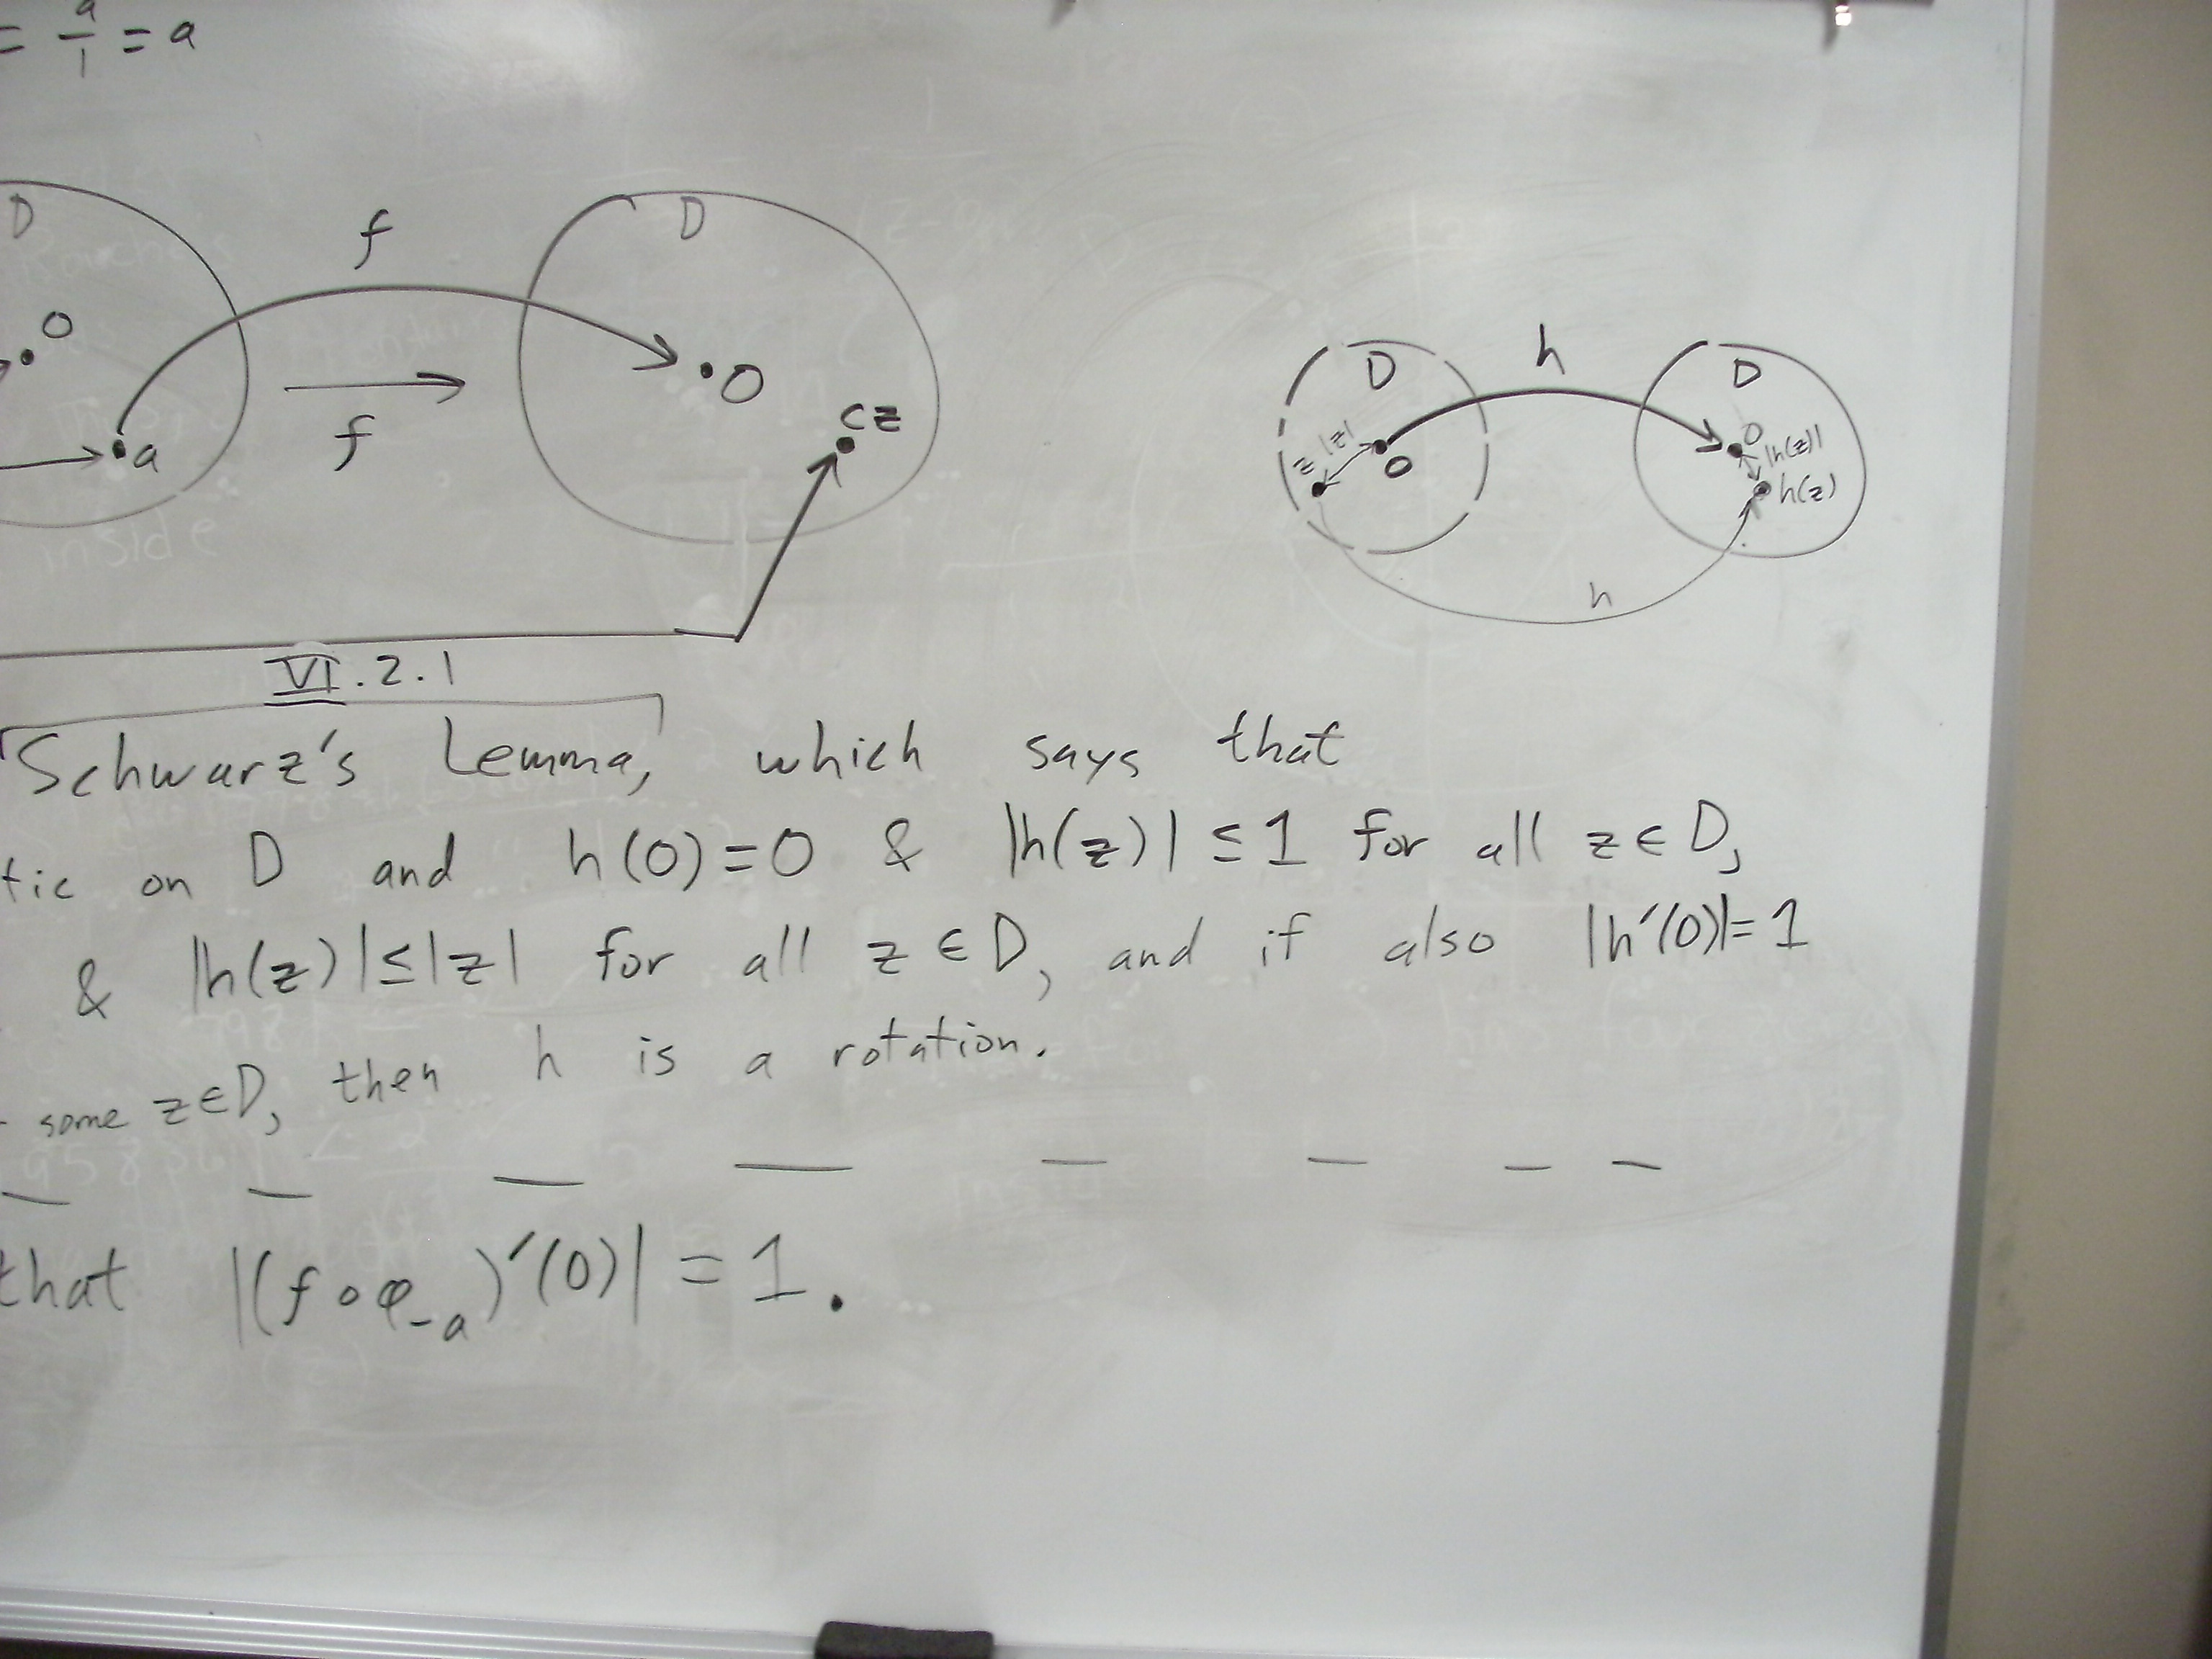 = a/1 = a
D
f
D
O
a
f
O
cz
D
h
D
z
|z|
O
O
|h(z)|
h(z)
h
VI.2.1
Schwarz's Lemma, which says that
tic on D and h(0)=0 & |h(z)| ≤ 1 for all z∈D,
& |h(z)|≤|z| for all z∈D, and if also |h'(0)|=1
some z∈D, then h is a rotation.
that |(f∘φ₋ₐ)'(0)| = 1.